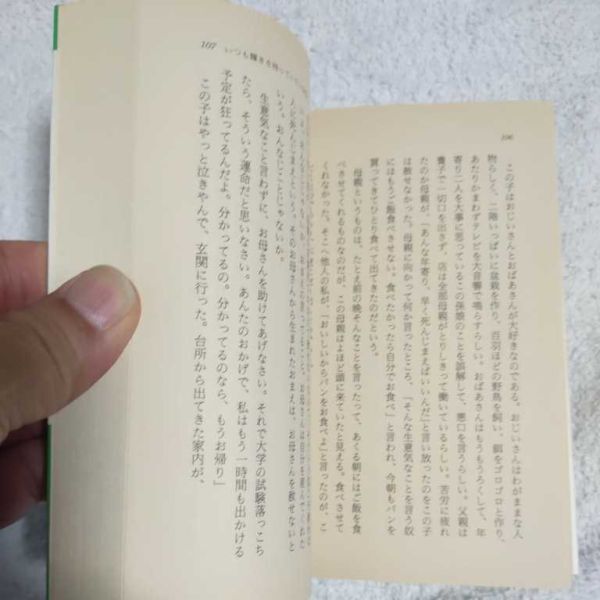 106
この子はおじいさんとおばあさんが大好きなのである。おじいさんはわがままな人
物らしく、二階いっぱいに盆栽を作り、百羽ほどの野鳥を飼い、餌をゴロゴロと作り、
あたりかまわずテレビを大音響で鳴らすらしい。おばあさんはもうもうろくして、年
寄り二人を大事に思っているこの孫娘のことを誤解して、悪口を言うらしい。父親は
養子で一切口を出さず、店は全部母親がとりしきって働いているらしい。苦労に疲れ
たのか母親が、「あんな年寄り、早く死んじまえばいいんだ」と言い放ったのをこの子
は赦せなかった。母親に向かって何か言ったところ、「そんな生意気なことを言う奴
にはもうご飯食べさせない。食べたかったら自分でお食べ」と言われ、今朝もパンを
買ってきてひとり食べて出てきたのだという。
母親というものは、たとえ前の晩そんなことを言ったって、あくる朝にはご飯を食
べさせてくれるものなのだが、この母親はよほど頭に来ていたと見える。食べさせて
くれなかった。そこへ他人の私が、「おいしいからパンをお食べよ」と言ったのが、こ
107
いつも輝きを持って
人に死んじまえという。そのお母さんから生まれたおまえは、お母さんを赦せないと
いう。おんなじことじゃないか。
生意気なこと言わずに、お母さんを助けてあげなさい。それで大学の試験落っこち
たら、そういう運命だと思いなさい。あんたのおかげで、私はもう一時間も出かける
予定が狂ってるんだよ。分かってるの。分かってるのなら、もうお帰り」
この子はやっと泣きやんで、玄関に行った。台所から出てきた家内が、